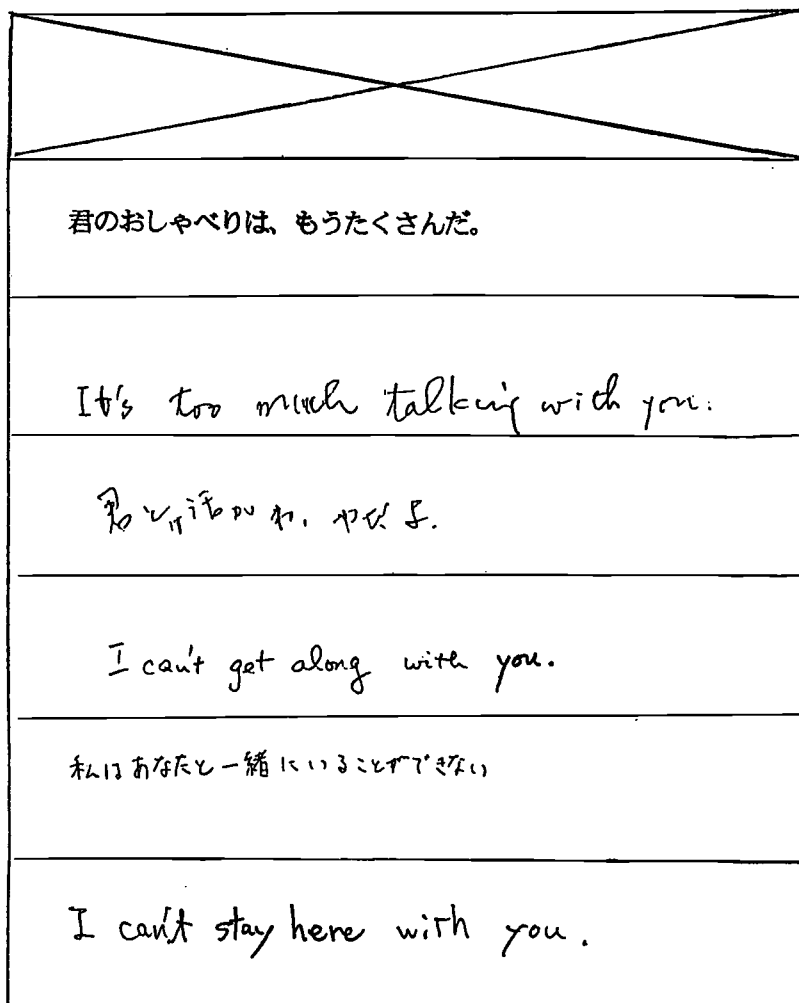 君のおしゃべりは、もうたくさんだ。
It's too much talking with you.
君とは話かわ、やだよ.
I can't get along with you.
私はあなたと一緒にいることができない
I can't stay here with you.